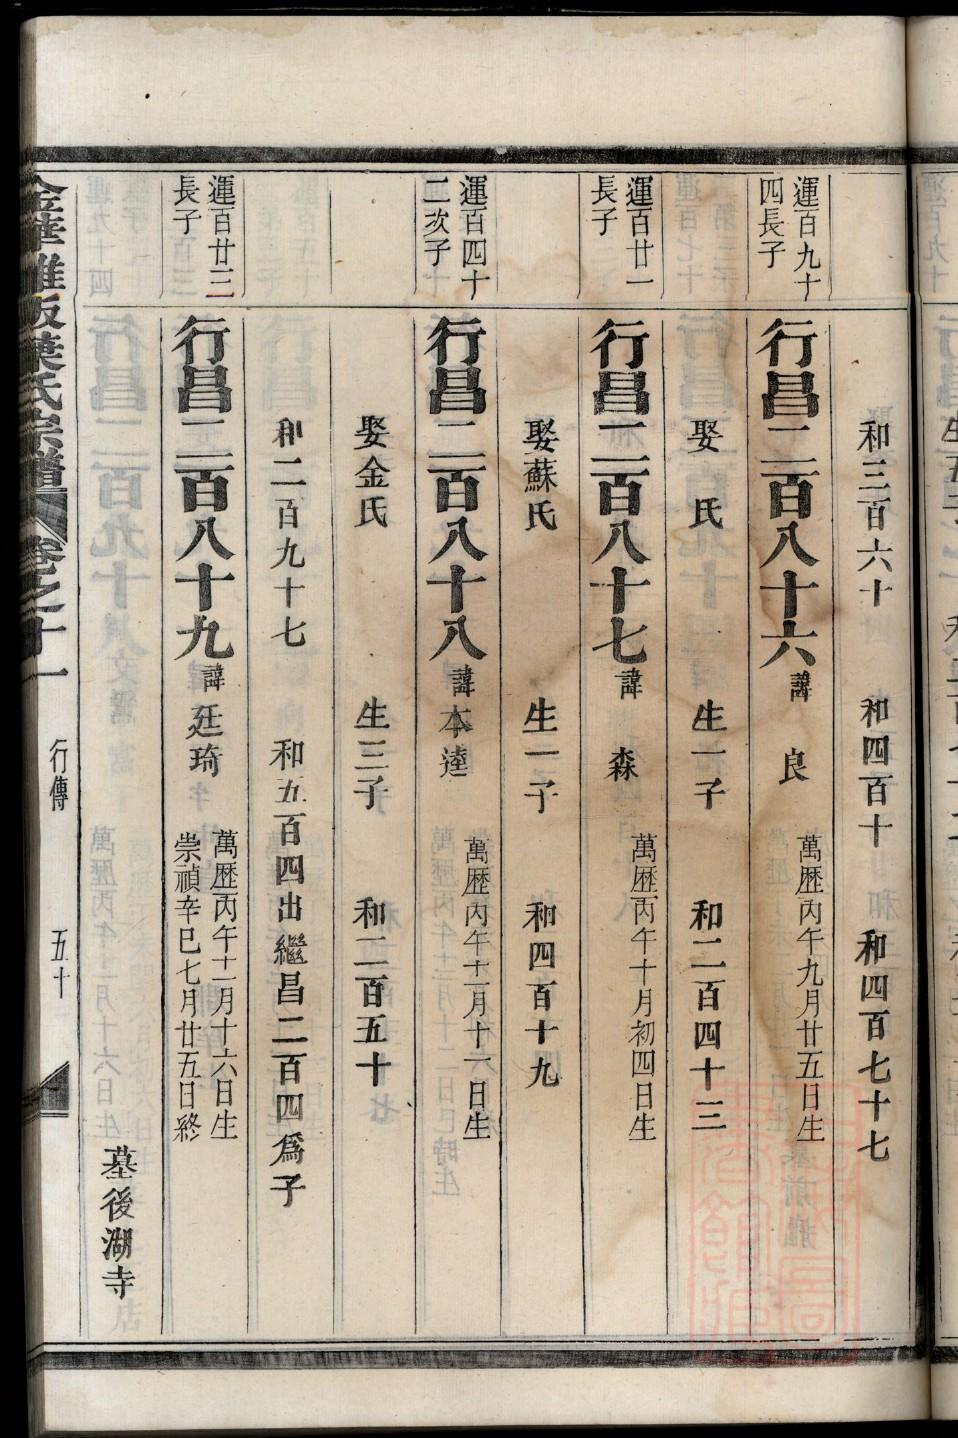 和三百六十 和四百十 和四百七十七
運百九十
四長子
行昌二百八十六 諱良
萬歷丙午九月廿五日生
娶 氏 生一子 和二百四十三
運百廿一
長子
行昌二百八十七 諱森
萬歷丙午十月初四日生
娶蘇氏 生一子 和四百十九
運百四十
二次子
行昌二百八十八 諱本逵
萬歷丙午十一月十一日生
娶金氏 生三子 和二百五十
和二百九十七 和五百四出繼昌二百四爲子
運百廿三
長子
行昌二百八十九 諱廷琦
萬歷丙午十二月十六日生
崇禎辛巳七月廿五日終
墓後湖寺
葉氏宗譜 卷之十一 行傳 五十